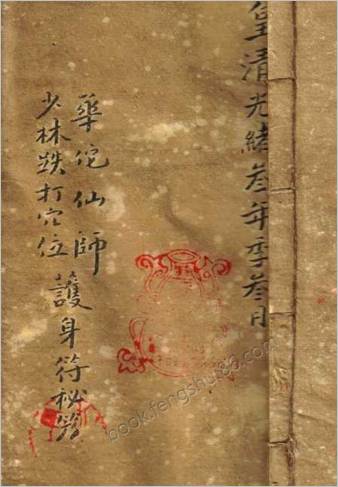 皇清光緒叁年季叁月
華佗仙師
少林跌打穴位護身符秘
book.fengshui86.com